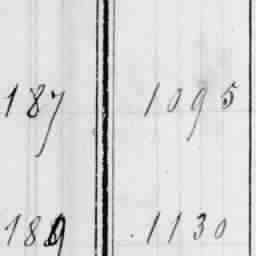 187 1095
189 1130